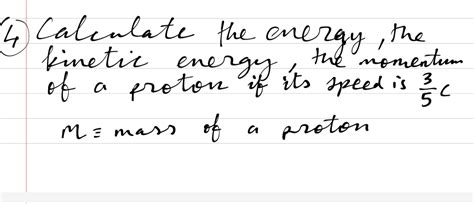 4) Calculate the energy, the
kinetic energy, the momentum
of a proton if its speed is 3/5 c
M ≡ mass of a proton